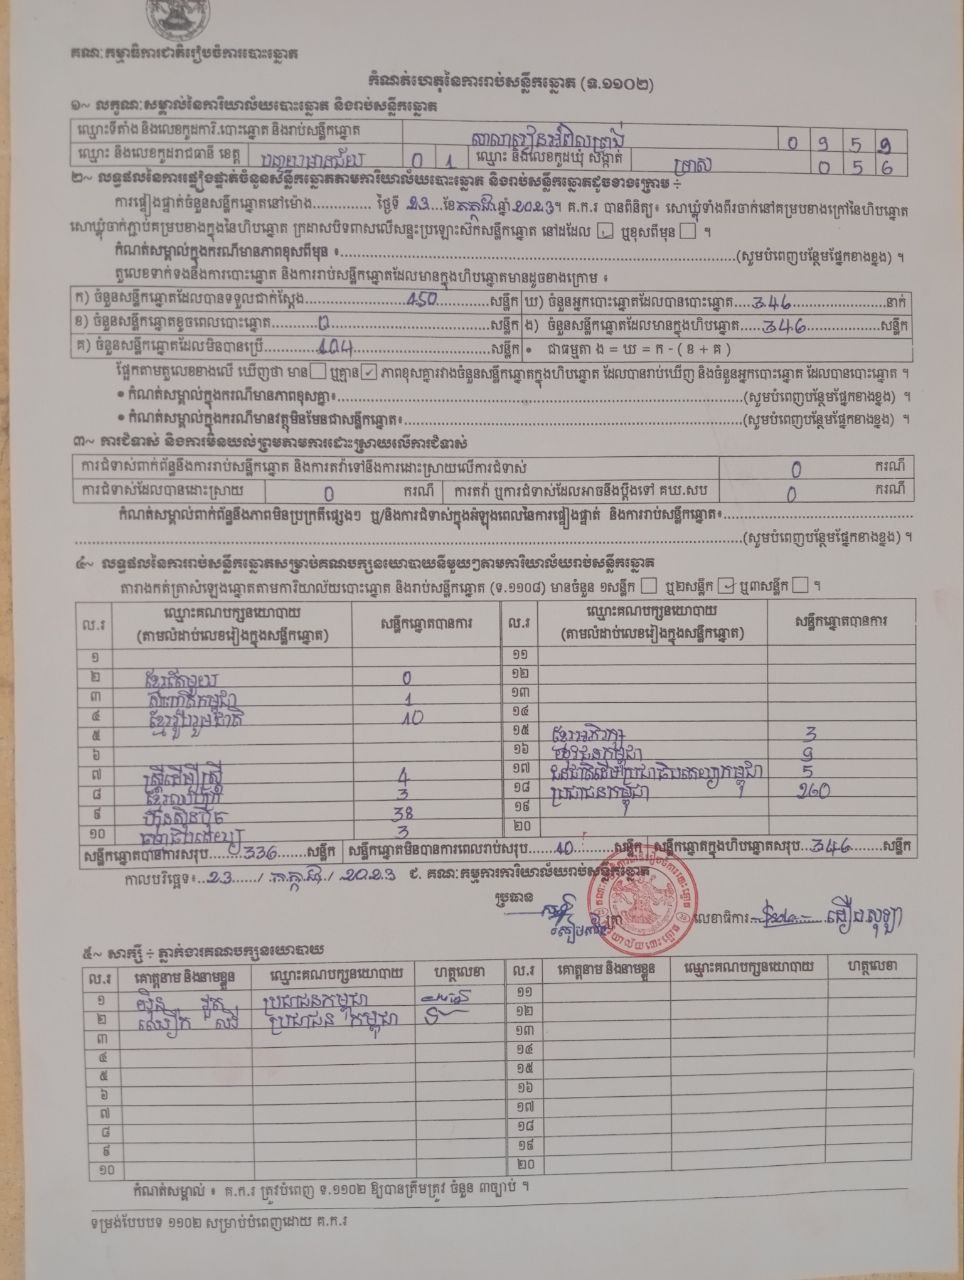 គណៈកម្មាធិការជាតិរៀបចំការបោះឆ្នោត
កំណត់ហេតុនៃការរាប់សន្លឹកឆ្នោត (ទ.១១០២)
១~ លក្ខណៈសម្គាល់នៃការិយាល័យបោះឆ្នោត និងរាប់សន្លឹកឆ្នោត
ឈ្មោះទីតាំង និងលេខកូដការិ.បោះឆ្នោត និងរាប់សន្លឹកឆ្នោត សាលារៀន 0 9 5 9
ឈ្មោះ និងលេខកូដរាជធានី ខេត្ត បន្ទាយមានជ័យ 0 1 ឈ្មោះ និងលេខកូដឃុំ សង្កាត់ 0 5 6
២~ លទ្ធផលនៃការផ្ទៀងផ្ទាត់ចំនួនសន្លឹកឆ្នោតតាមការិយាល័យបោះឆ្នោត និងរាប់សន្លឹកឆ្នោតដូចខាងក្រោម ÷
ការផ្ទៀងផ្ទាត់ចំនួនសន្លឹកឆ្នោតនៅម៉ោង.............. ថ្ងៃទី 23 ខែ កក្កដា ឆ្នាំ 2023។ គ.ក.រ បានពិនិត្យ៖ សោឃ្លុំទាំងពីរចាក់នៅគម្របខាងក្រៅនៃហិបឆ្នោត
សោឃ្លុំចាក់ភ្ជាប់គម្របខាងក្នុងនៃហិបឆ្នោត ក្រដាសបិទពាសលើសន្ទះប្រឡោះស៊កសន្លឹកឆ្នោត នៅដដែល ☑ ឬខុសពីមុន ☐ ។
កំណត់សម្គាល់ក្នុងករណីមានភាពខុសពីមុន ៖..............(សូមបំពេញបន្ថែមផ្នែកខាងខ្នង) ។
តួលេខទាក់ទងនឹងការបោះឆ្នោត និងការរាប់សន្លឹកឆ្នោតដែលមានក្នុងហិបឆ្នោតមានដូចខាងក្រោម ៖
ក) ចំនួនសន្លឹកឆ្នោតដែលបានទទួលជាក់ស្តែង..........450..........សន្លឹក ឃ) ចំនួនអ្នកបោះឆ្នោតដែលបានបោះឆ្នោត....346..........នាក់
ខ) ចំនួនសន្លឹកឆ្នោតខូចពេលបោះឆ្នោត..........0..........សន្លឹក ង) ចំនួនសន្លឹកឆ្នោតដែលមានក្នុងហិបឆ្នោត....346..........សន្លឹក
គ) ចំនួនសន្លឹកឆ្នោតដែលមិនបានប្រើ..........104..........សន្លឹក • ជាធម្មតា ង = ឃ = ក - ( ខ + គ )
ផ្អែកតាមតួលេខខាងលើ ឃើញថា មាន ☐ ឬគ្មាន ☑ ភាពខុសគ្នារវាងចំនួនសន្លឹកឆ្នោតក្នុងហិបឆ្នោត ដែលបានរាប់ឃើញ និងចំនួនអ្នកបោះឆ្នោត ដែលបានបោះឆ្នោត ។
• កំណត់សម្គាល់ក្នុងករណីមានភាពខុសគ្នា៖..............(សូមបំពេញបន្ថែមផ្នែកខាងខ្នង) ។
• កំណត់សម្គាល់ក្នុងករណីមានវត្ថុមិនមែនជាសន្លឹកឆ្នោត៖..............(សូមបំពេញបន្ថែមផ្នែកខាងខ្នង) ។
៣~ ការជំទាស់ និងការមិនយល់ព្រមតាមការដោះស្រាយលើការជំទាស់
ការជំទាស់ពាក់ព័ន្ធនឹងការរាប់សន្លឹកឆ្នោត និងការតវ៉ាទៅនឹងការដោះស្រាយលើការជំទាស់ 0 ករណី
ការជំទាស់ដែលបានដោះស្រាយ 0 ករណី ការតវ៉ា ឬការជំទាស់ដែលអាចនឹងប្តឹងទៅ គឃ.សប 0 ករណី
កំណត់សម្គាល់ពាក់ព័ន្ធនឹងភាពមិនប្រក្រតីផ្សេងៗ ឬ/និងការជំទាស់ក្នុងអំឡុងពេលនៃការផ្ទៀងផ្ទាត់ និងការរាប់សន្លឹកឆ្នោត៖..............
..............(សូមបំពេញបន្ថែមផ្នែកខាងខ្នង) ។
៤~ លទ្ធផលនៃការរាប់សន្លឹកឆ្នោតសម្រាប់គណបក្សនយោបាយនីមួយៗតាមការិយាល័យរាប់សន្លឹកឆ្នោត
តារាងកត់ត្រាសំឡេងឆ្នោតតាមការិយាល័យបោះឆ្នោត និងរាប់សន្លឹកឆ្នោត (ទ.១១០៨) មានចំនួន ១សន្លឹក ☐ ឬ២សន្លឹក ☑ ឬ៣សន្លឹក ☐ ។
ល.រ ឈ្មោះគណបក្សនយោបាយ (តាមលំដាប់លេខរៀងក្នុងសន្លឹកឆ្នោត) សន្លឹកឆ្នោតបានការ ល.រ ឈ្មោះគណបក្សនយោបាយ (តាមលំដាប់លេខរៀងក្នុងសន្លឹកឆ្នោត) សន្លឹកឆ្នោតបានការ
១ ១១
២ ខ្មែរតែមួយ 0 ១២
៣ សញ្ជាតិកម្ពុជា 1 ១៣
៤ ខ្មែររួបរួមជាតិ 10 ១៤
៥ ១៥ ខ្មែរអភិរក្ស 3
៦ ១៦ យុវជនកម្ពុជា 9
៧ ស្ត្រីដើម្បីស្ត្រី 4 ១៧ ជនជាតិដើមប្រជាធិបតេយ្យកម្ពុជា 5
៨ ខ្មែរឈប់ក្រ 3 ១៨ ប្រជាជនកម្ពុជា 260
៩ ហ៊្វុនស៊ិនប៉ិច 38 ១៩
១០ 3 ២០
សន្លឹកឆ្នោតបានការសរុប........336.......សន្លឹក សន្លឹកឆ្នោតមិនបានការពេលរាប់សរុប.....10.....សន្លឹក សន្លឹកឆ្នោតក្នុងហិបឆ្នោតសរុប..346......សន្លឹក
កាលបរិច្ឆេទ៖..23....../ កក្កដា / 2023 ជ. គណៈកម្មការការិយាល័យរាប់សន្លឹកឆ្នោត
ប្រធាន
លេខាធិការ
៥~ សាក្សី ÷ ភ្នាក់ងារគណបក្សនយោបាយ
ល.រ គោត្តនាម និងនាមខ្លួន ឈ្មោះគណបក្សនយោបាយ ហត្ថលេខា ល.រ គោត្តនាម និងនាមខ្លួន ឈ្មោះគណបក្សនយោបាយ ហត្ថលេខា
១ ប្រជាជនកម្ពុជា ១១
២ ប្រជាជន កម្ពុជា ១២
៣ ១៣
៤ ១៤
៥ ១៥
៦ ១៦
៧ ១៧
៨ ១៨
៩ ១៩
១០ ២០
កំណត់សម្គាល់ ៖ គ.ក.រ ត្រូវបំពេញ ទ.១១០២ ឱ្យបានត្រឹមត្រូវ ចំនួន ៣ច្បាប់ ។
ទម្រង់បែបបទ ១១០២ សម្រាប់បំពេញដោយ គ.ក.រ